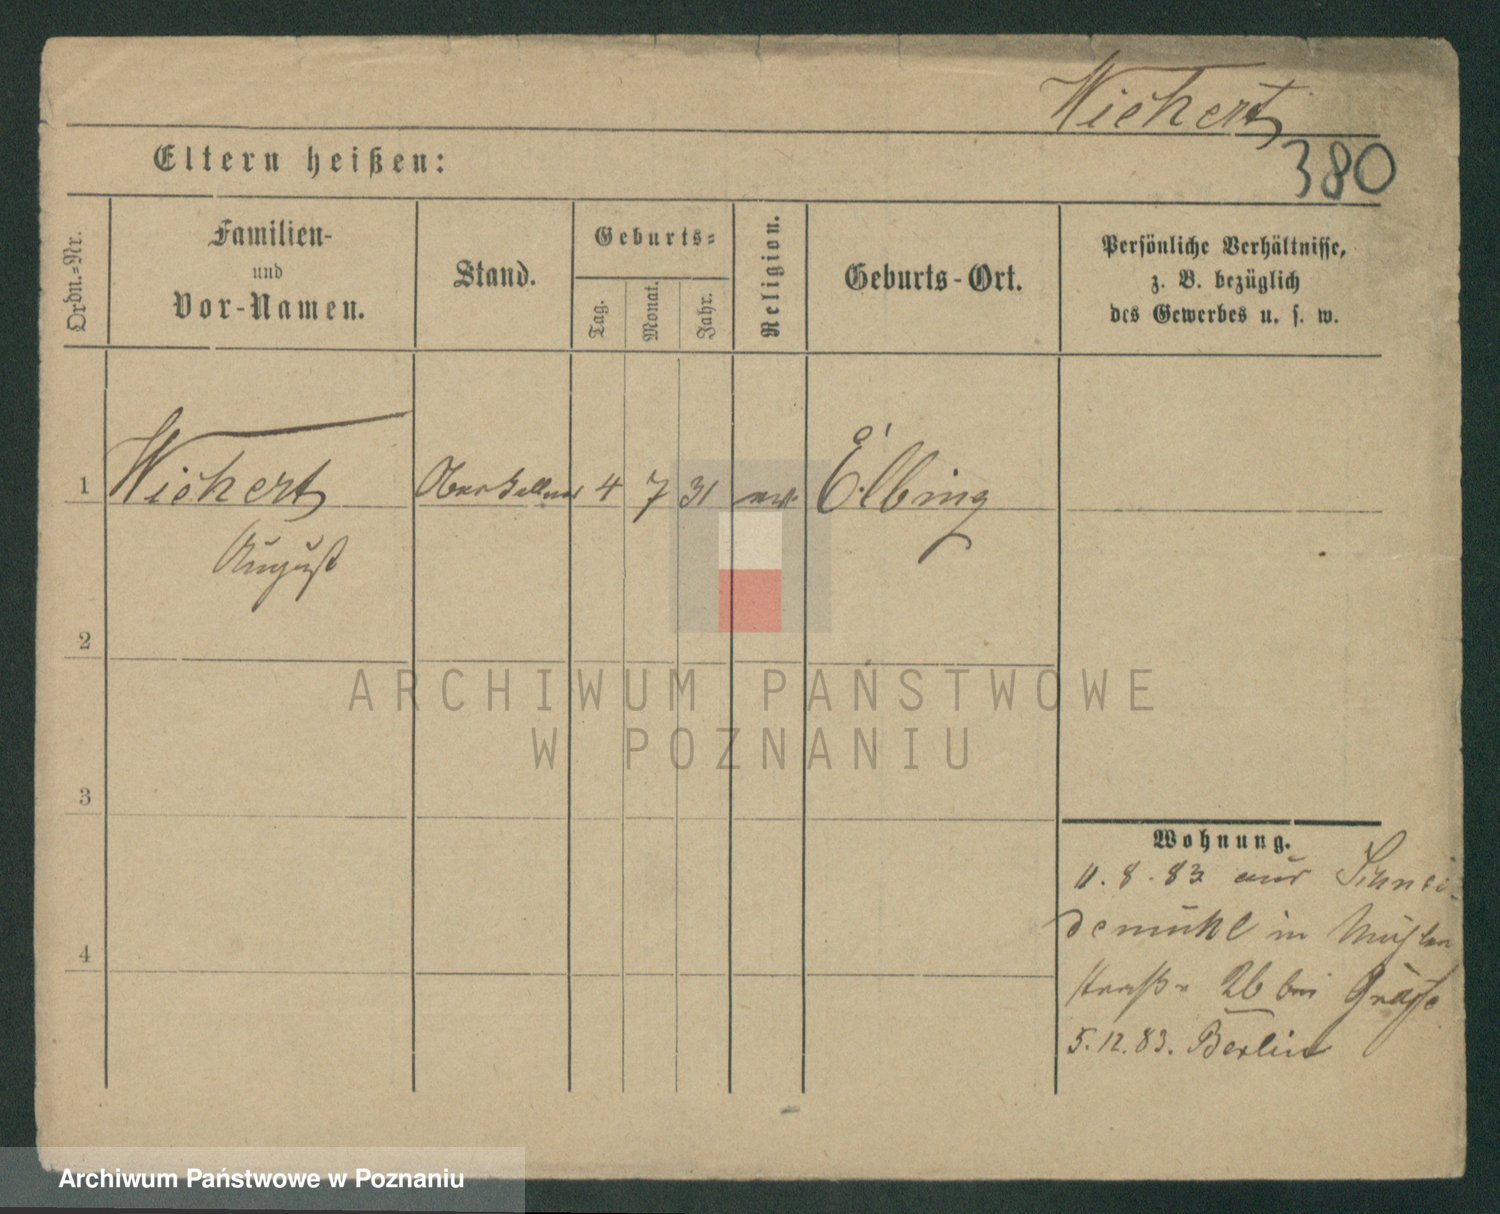 Wichert
380
Eltern heißen:
Ordn.-Nr.
Familien-
und
Vor-Namen.
Stand.
Geburts-
Tag.
Monat.
Jahr.
Religion.
Geburts-Ort.
Persönliche Verhältnisse,
z. B. bezüglich
des Gewerbes u. s. w.
1 Wichert Oberkellner 4 7 31 ev. Elbing
August
2
3
4
Wohnung.
11. 8. 83 aus Schnei-
demühl in Mühlen
straße 26 bei Gräfe
5. 12. 83. Berlin
ARCHIWUM PAŃSTWOWE
W POZNANIU
Archiwum Państwowe w Poznaniu